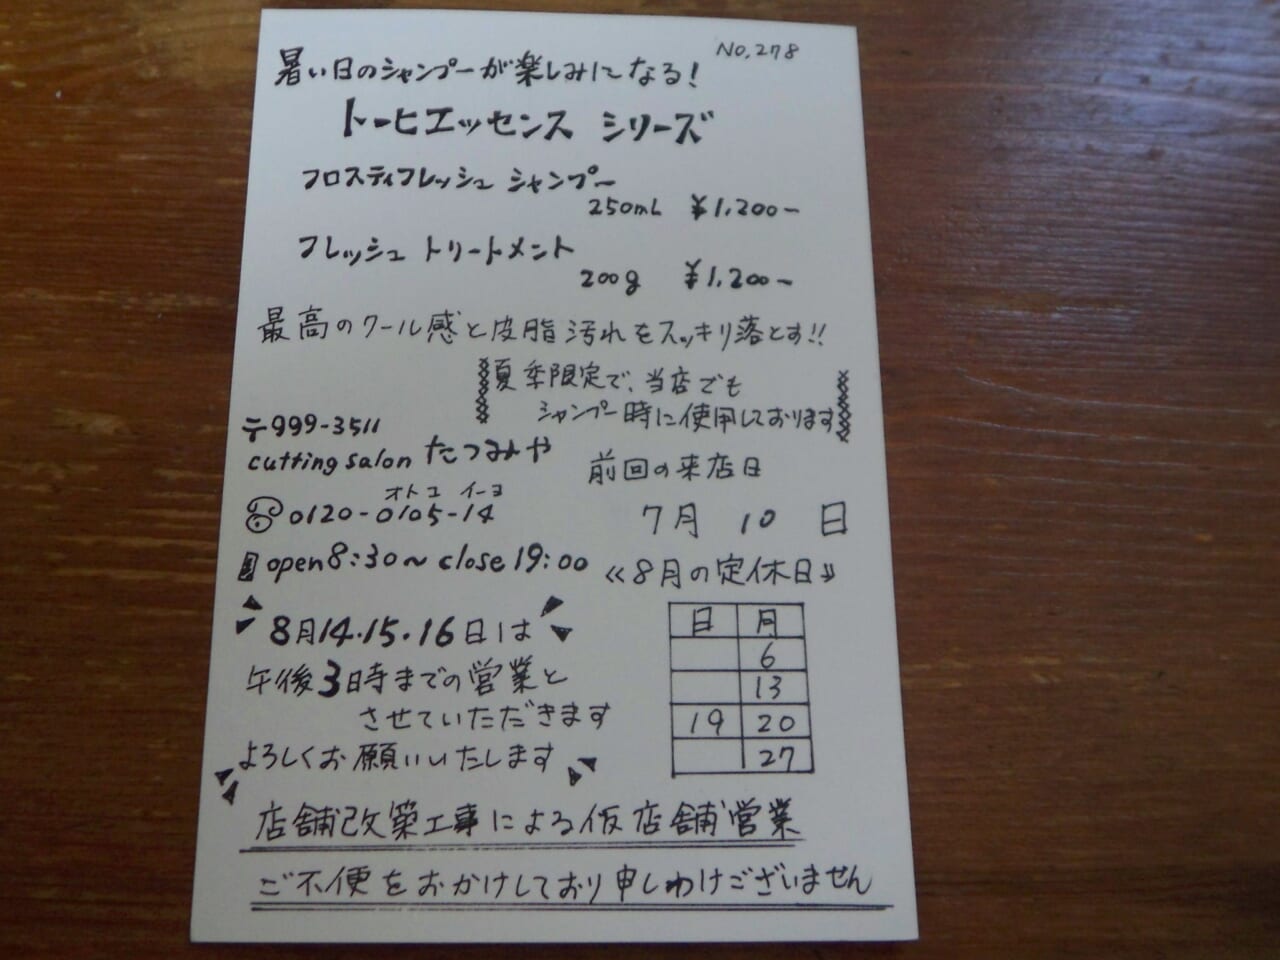 No.278
暑い日のシャンプーが楽しみになる!
トーヒエッセンス シリーズ
フロスティフレッシュ シャンプー
250mL ¥1,200-
フレッシュ トリートメント
200g ¥1,200-
最高のクール感と皮脂汚れをスッキリ落とす!!
夏季限定で、当店でも
シャンプー時に使用しております
〒999-3511
cutting salon たつみや
オトコ イーヨ
0120-0105-14
open8:30~close19:00
前回の来店日
7月 10 日
《8月の定休日》
日 月
6
13
19 20
27
8月14.15.16日は
午後3時までの営業と
させていただきます
よろしくお願いいたします
店舗改築工事による仮店舗営業
ご不便をおかけしており申しわけございません